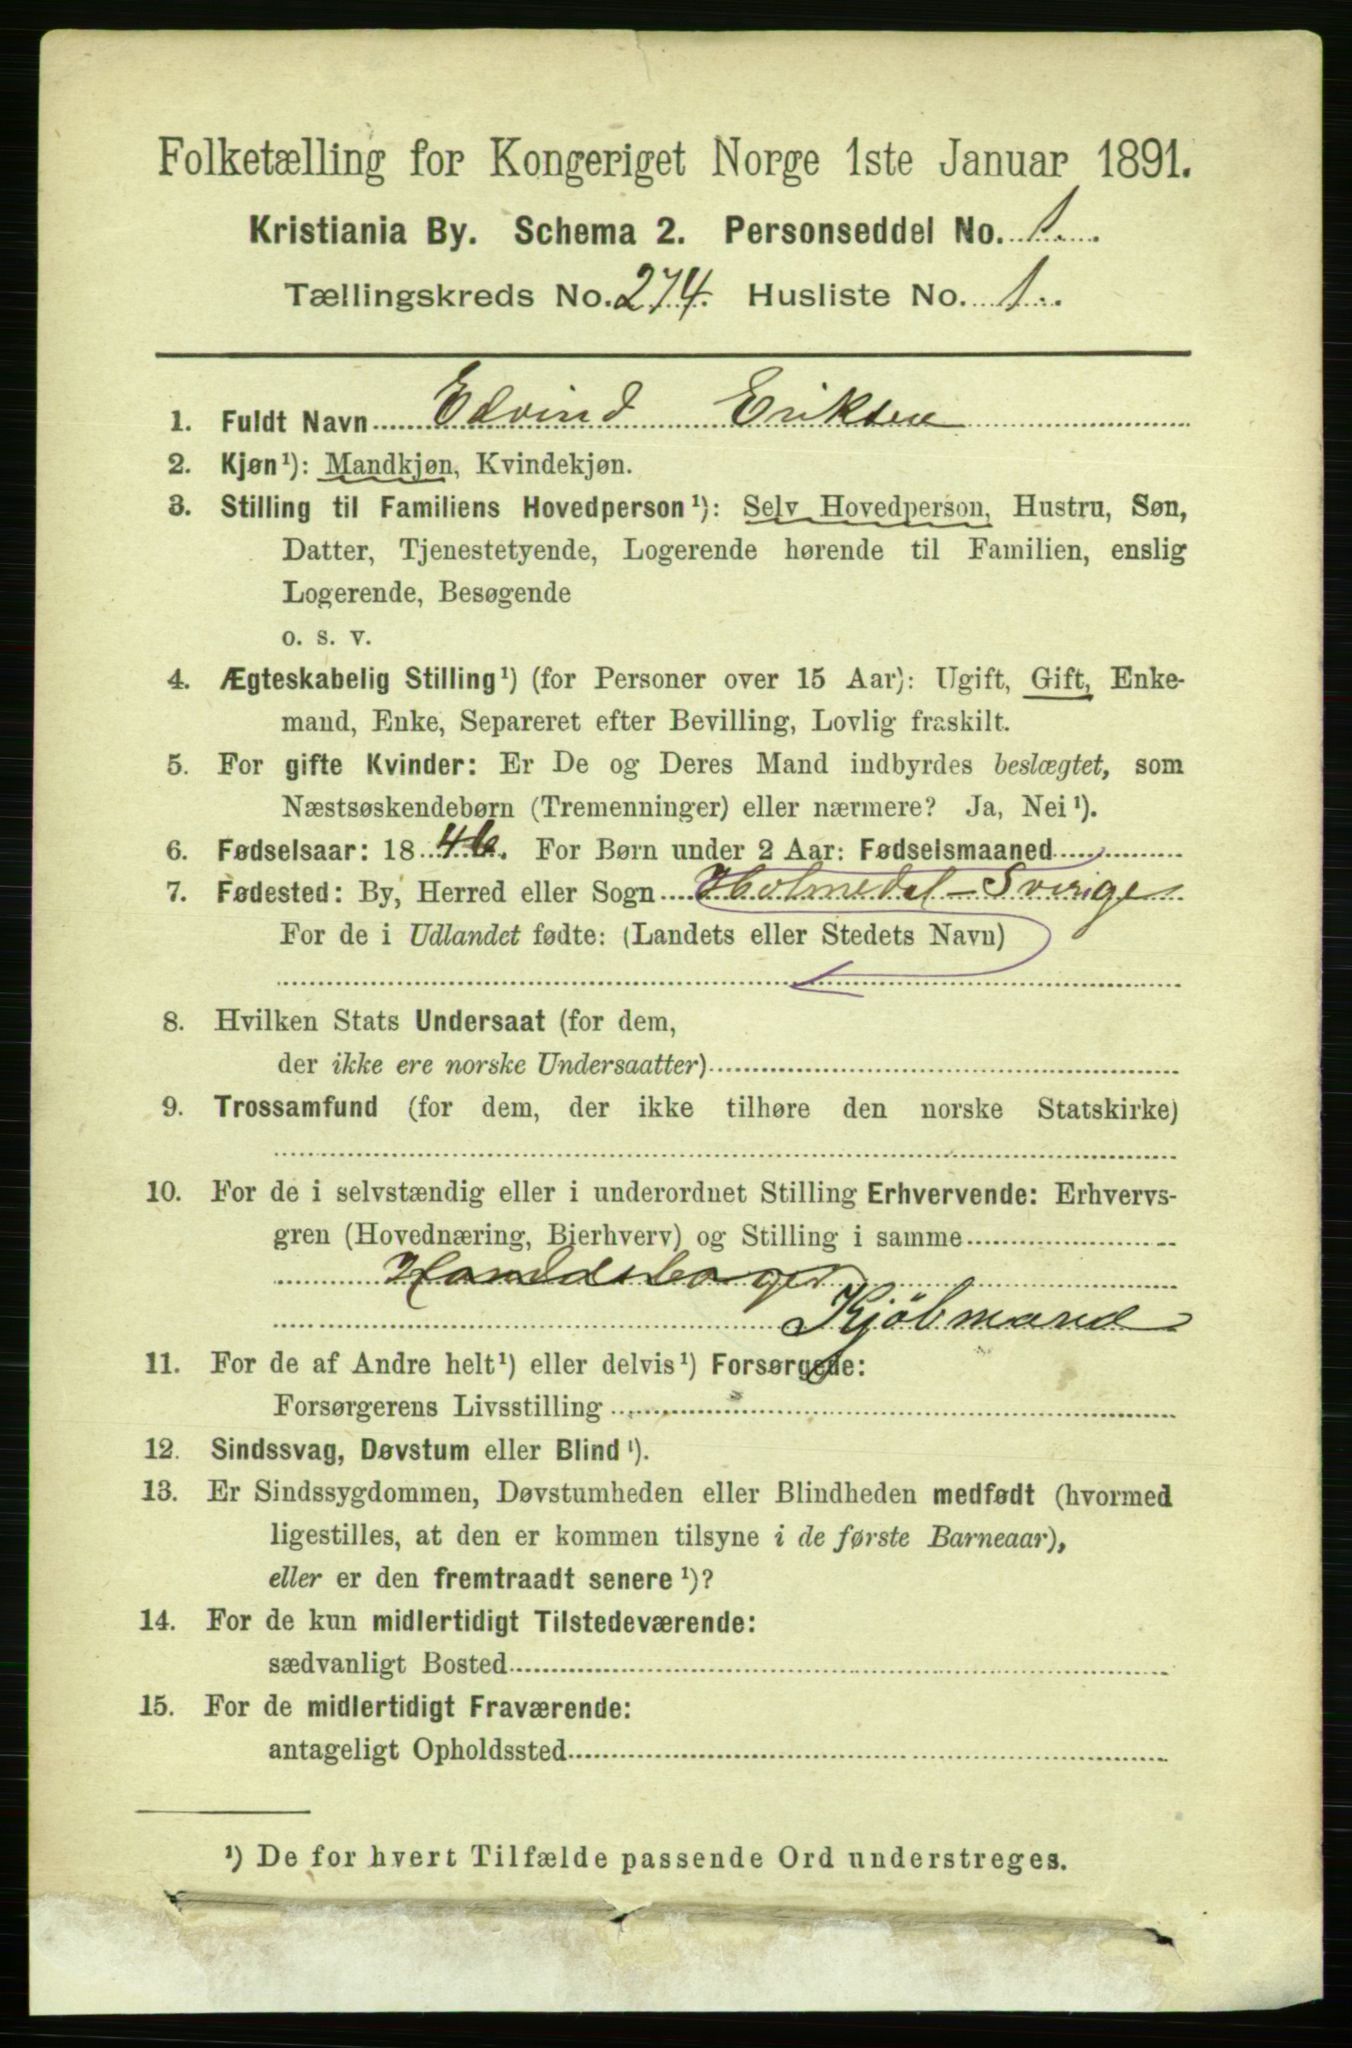 Folketælling for Kongeriget Norge 1ste Januar 1891.
Kristiania By. Schema 2. Personseddel No. 1.
Tællingskreds No. 274. Husliste No. 1.
1. Fuldt Navn Edvind Eriksen
2. Kjøn¹): Mandkjøn, Kvindekjøn.
3. Stilling til Familiens Hovedperson¹): Selv Hovedperson, Hustru, Søn,
Datter, Tjenestetyende, Logerende hørende til Familien, enslig
Logerende, Besøgende
o. s. v.
4. Ægteskabelig Stilling¹) (for Personer over 15 Aar): Ugift, Gift, Enke-
mand, Enke, Separeret efter Bevilling, Lovlig fraskilt.
5. For gifte Kvinder: Er De og Deres Mand indbyrdes beslægtet, som
Næstsøskendebørn (Tremenninger) eller nærmere? Ja, Nei¹).
6. Fødselsaar: 1846. For Børn under 2 Aar: Fødselsmaaned
7. Fødested: By, Herred eller Sogn Holmedal - Sverige
For de i Udlandet fødte: (Landets eller Stedets Navn)
8. Hvilken Stats Undersaat (for dem,
der ikke ere norske Undersaatter)
9. Trossamfund (for dem, der ikke tilhøre den norske Statskirke)
10. For de i selvstændig eller i underordnet Stilling Erhvervende: Erhvervs-
gren (Hovednæring, Bierhverv) og Stilling i samme
Handelsborger
Kjøbmand
11. For de af Andre helt¹) eller delvis¹) Forsørgede:
Forsørgerens Livsstilling
12. Sindssvag, Døvstum eller Blind¹).
13. Er Sindssygdommen, Døvstumheden eller Blindheden medfødt (hvormed
ligestilles, at den er kommen tilsyne i de første Barneaar),
eller er den fremtraadt senere¹)?
14. For de kun midlertidigt Tilstedeværende:
sædvanligt Bosted
15. For de midlertidigt Fraværende:
antageligt Opholdssted
¹) De for hvert Tilfælde passende Ord understreges.